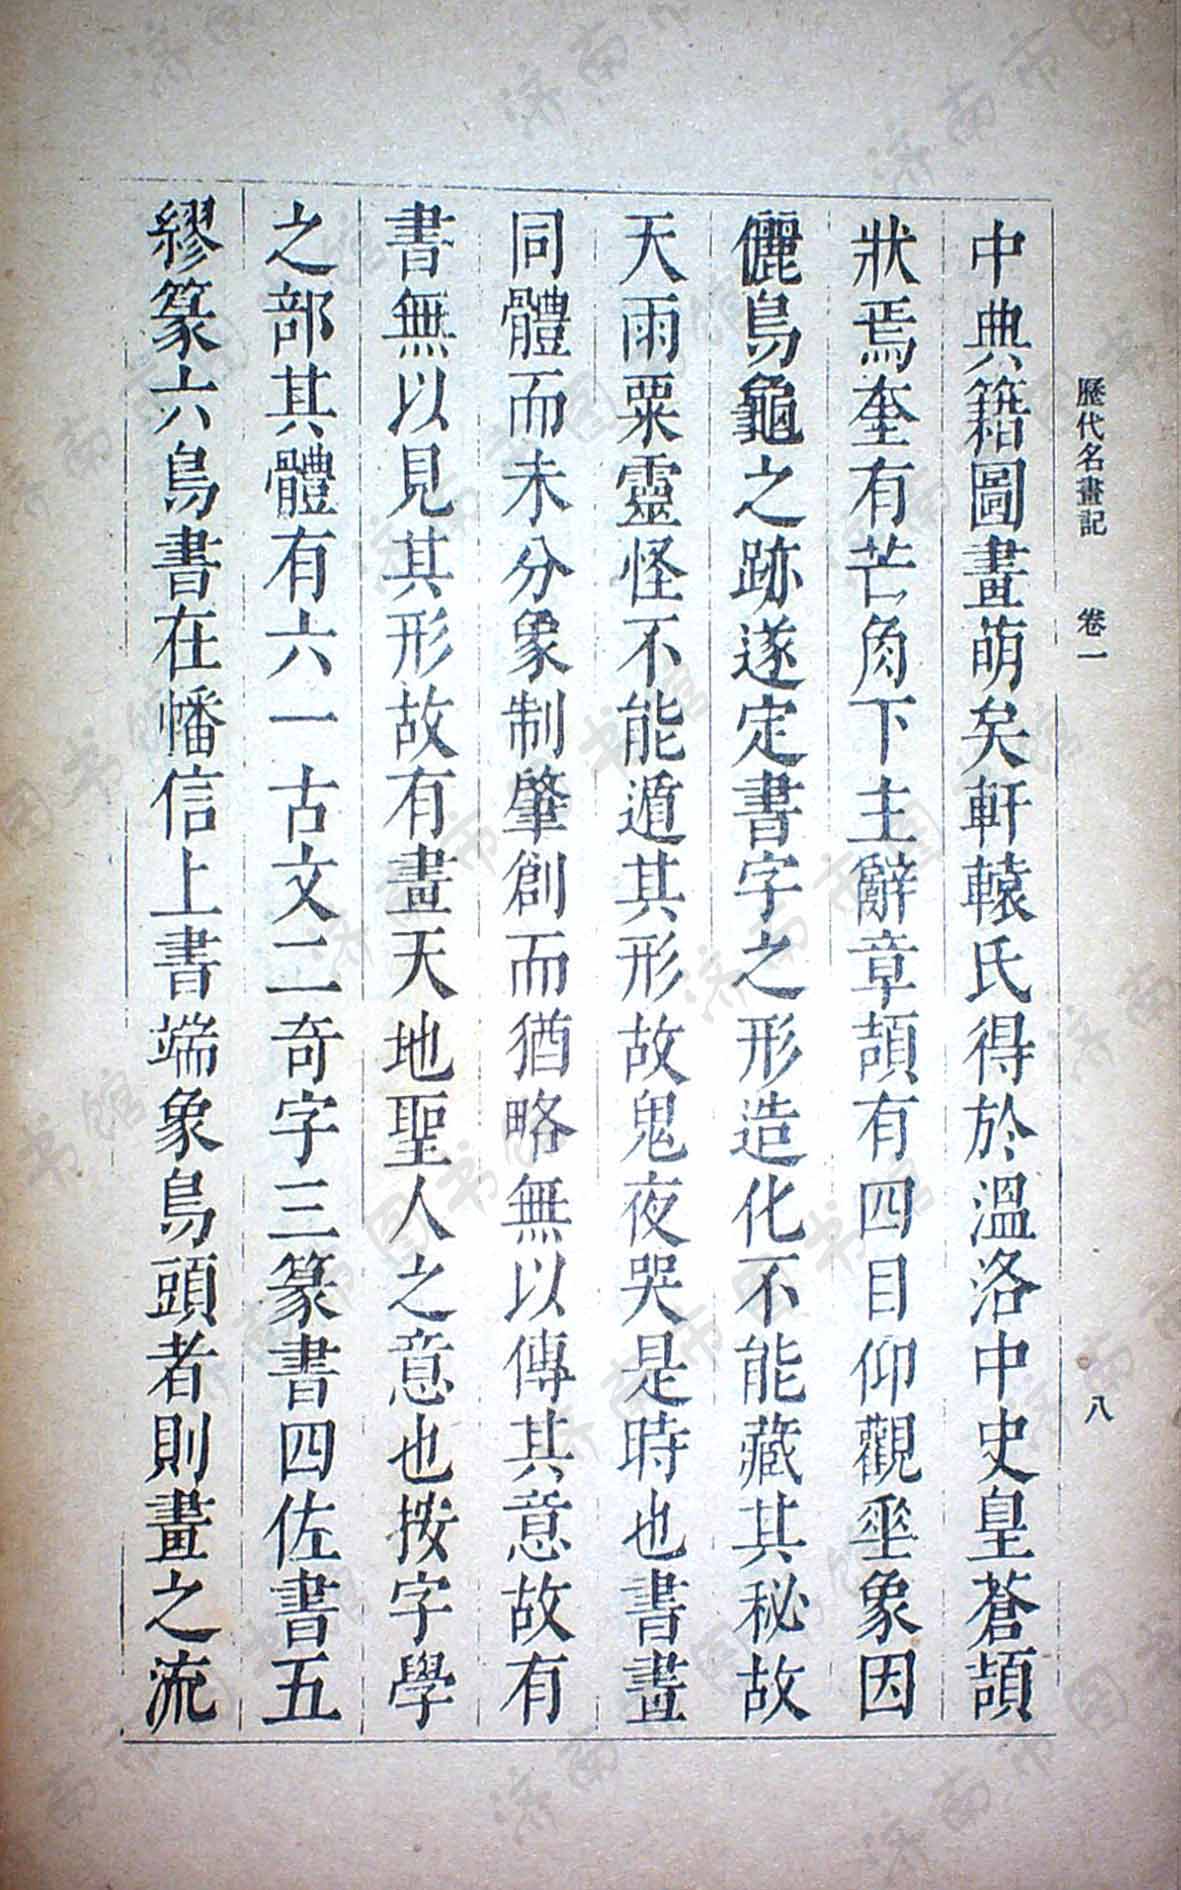 歷代名畫記　卷一　八
中典籍圖畫萌矣軒轅氏得於溫洛中史皇蒼頡
狀焉奎有芒角下主辭章頡有四目仰觀垂象因
儷鳥龜之跡遂定書字之形造化不能藏其秘故
天雨粟靈怪不能遁其形故鬼夜哭是時也書畫
同體而未分象制肇創而猶略無以傳其意故有
書無以見其形故有畫天地聖人之意也按字學
之部其體有六一古文二奇字三篆書四佐書五
繆篆六鳥書在幡信上書端象鳥頭者則畫之流
济南市图书馆